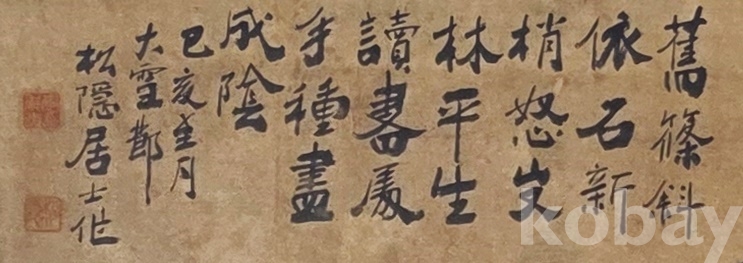 舊篠斜
依石新
梢怒出
林平生
讀書處
手種盡
成陰
己亥至月
大雪節
松隱居士作
kobay